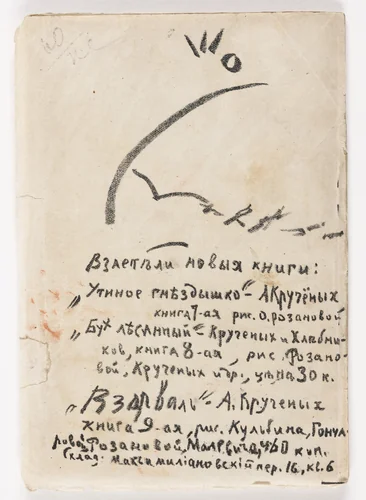 Взлетѣли новыя книги:
„Утиное гнѣздышко" – А Кручёных
книга 7-ая рис. О. Розановой
„Бух лѣсинный" – Крученых и Хлѣбни-
ков, книга 8-ая, рис. Розано-
вой, Крученых и др., цѣна 30 к.
„Взорваль" – А. Крученых
книга 9-ая, рис. Кульбина, Гонча-
ровой, Розановой, Малевича, 60 коп.
Склад: Максимилiановскiй пер. 16, кв. 6